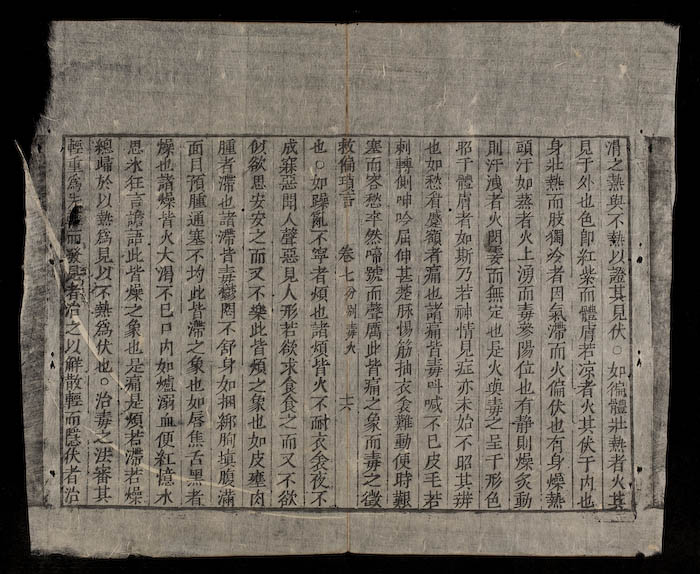 滑之熱與不熱以證其見伏○如徧體壯熱者火其
見于外也色卽紅紫而體膚若凉者火其伏于内也
身壯熱而肢獨冷者因氣滯而火偏伏也有身燥熱
頭汗如蒸者火上湧而毒參陽位也有靜則燥炙動
則汗洩者火閃霎而無定也是火與毒之呈于形色
昭于體膚者如斯乃若神情見症亦未始不昭其辨
也如愁眉蹙額者痛也諸痛皆毒呌喊不已皮毛若
刺轉側呻吟屈伸甚楚脉惕筋抽衣食難動便時艱
塞而容愁率然啼號而聲厲此皆痛之象而毒之徵
救偏瑣言 卷七分別毒火 十六
也○如躁亂不寧者煩也諸煩皆火不耐衣衾夜不
成寐惡聞人聲惡見人形若欲求食食之而又不欲
似欲思安安之而又不樂此皆煩之象也如皮壅肉
腫者滯也諸滯皆毒鬱悶不舒身如捆綁胸填腹滿
面目預腫通塞不均此皆滯之象也如唇焦舌黑者
燥也諸燥皆火大渴不已口内如爐溺血便紅憶水
思氷狂言譫語此皆燥之象也是痛是煩若滯若燥
總歸於以熱爲見以不熱爲伏也○治毒之法審其
輕重爲先 而發見者治之以解散輕而隱伏者治